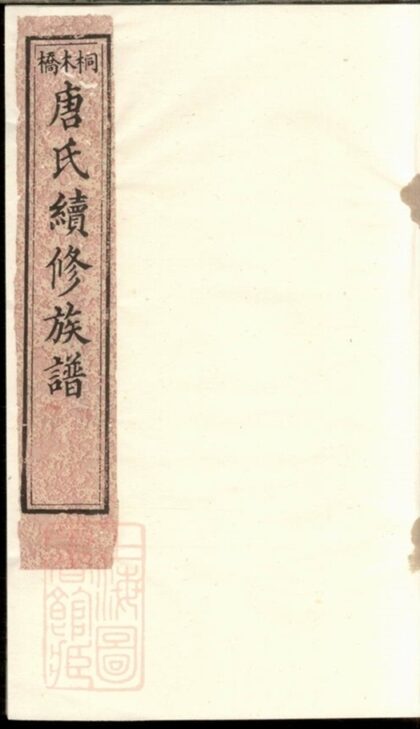 桐木橋
唐氏續修族譜
上海圖
書館藏